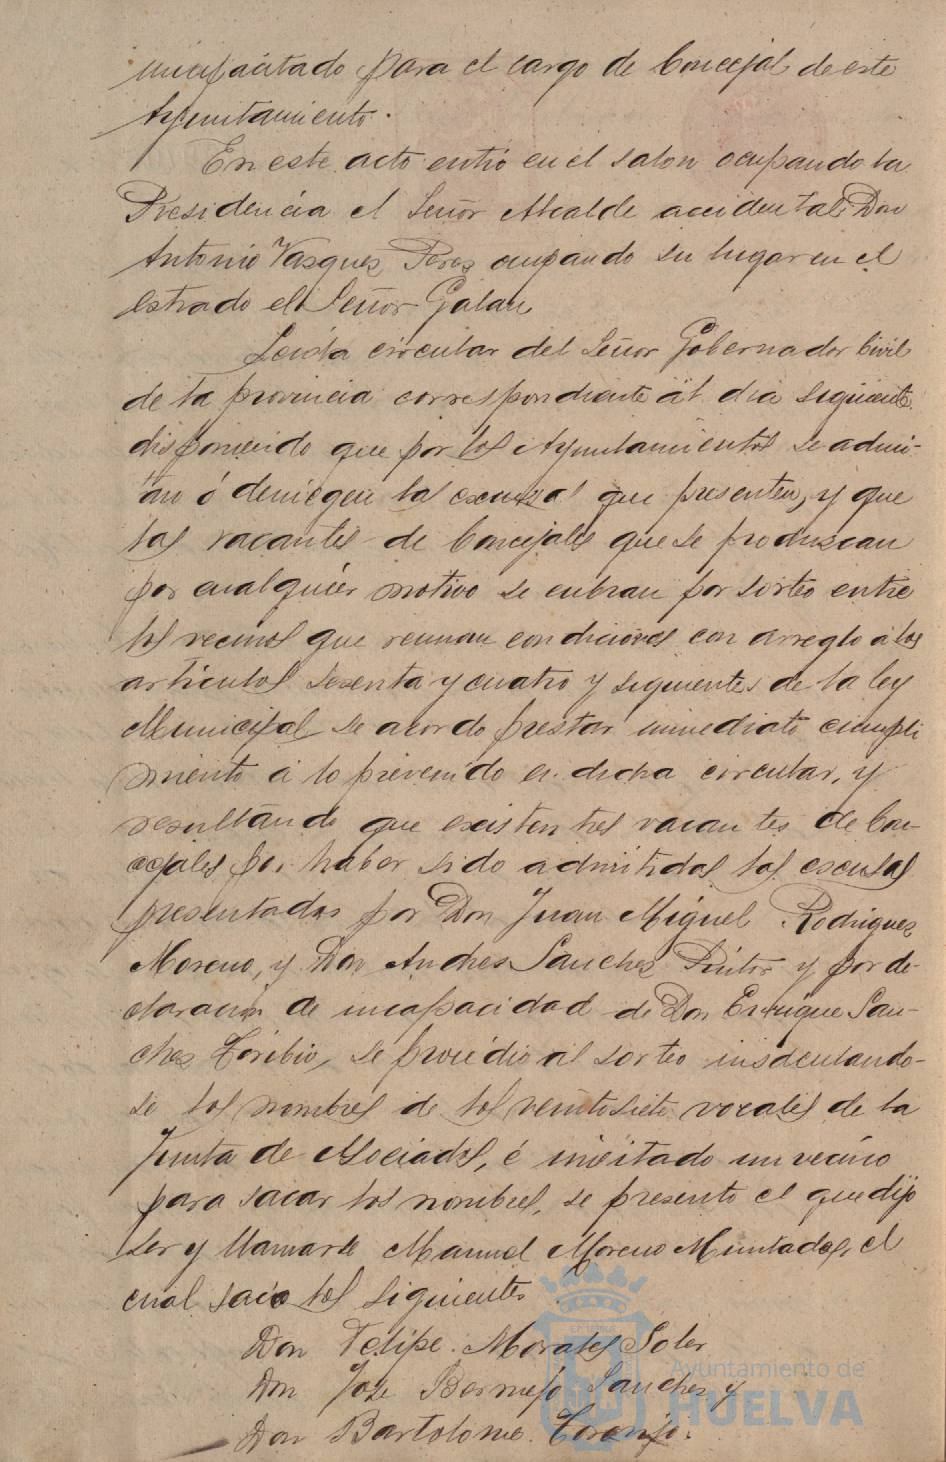 incapacitado para el cargo de Concejal de este
Ayuntamiento.
En este acto entró en el salon ocupando la
Presidencia el Señor Alcalde accidental Don
Antonio Vasquez Peres ocupando su lugar en el
estrado el Señor Galan
Leida circular del Señor Gobernador Civil
de la provincia correspondiente al dia siguiente
disponiendo que por los Ayuntamientos se admi-
tan ó denieguen las excusas que presenten, y que
las vacantes de Concejales que se produscan
por cualquier motivo se cubran por sorteo entre
los vecinos que reunan condiciones con arreglo á los
articulos sesenta y cuatro y siguientes de la ley
Municipal se acordo prestar inmediato cumpli
miento á lo prevenido en dicha circular, y
resultando que existen tres vacantes de Con-
cejales por haber sido admitidas las escusas
presentadas por Don Juan Miguel Rodriguez
Moreno, y Don Andres Sanchez Pintor y por de-
claracion de incapacidad de Don Enrique San-
chez Toribio, se procedio al sorteo insaculando-
se los nombres de los veintisiete vocales de la
Junta de Asociados, é invitado un vecino
para sacar los nombres, se presento el que dijo
ser y llamarse Manuel Moreno Muntadas, el
cual saco los siguientes
Don Felipe Morales Soler
Don Jose Bermejo Sanchez y
Don Bartolome Toronjo.
Ayuntamiento de
HUELVA